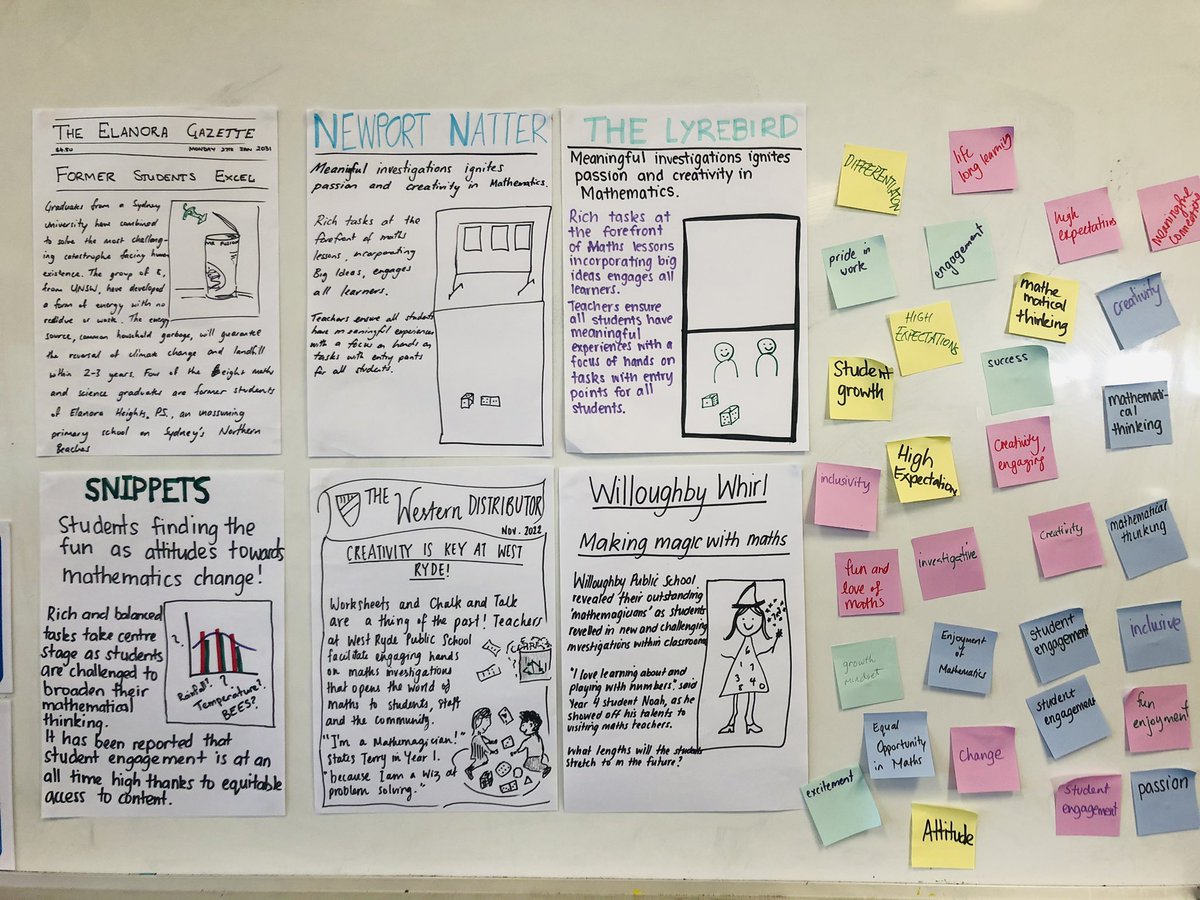 THE ELANORA GAZETTE
$4.50 MONDAY 27TH JAN 2031
FORMER STUDENTS EXCEL
Graduates from a Sydney
University have combined
to solve the most challeng-
ing catastrophe facing human
existence. The group of 8,
from UNSW, have developed
a form of energy with no
residue or waste. The energy
source, common household garbage, will guarantee
the reversal of climate change and landfill
within 2-3 years. Four of the eight maths
and science graduates are former students
of Elanora Heights P.S., an unassuming
primary school on Sydney's Northern
Beaches
MR FUSION
NEWPORT NATTER
Meaningful investigations ignites
passion and creativity in Mathematics.
Rich tasks at the
forefront of maths
lessons, incorporating
Big Ideas, engages
all learners.
Teachers ensure all students
have meaningful experiences
with a focus on hands on
tasks with entry points
for all students.
THE LYREBIRD
Meaningful investigations ignites
passion and creativity in
Mathematics.
Rich tasks at
the forefront
of Maths lessons
incorporating big
ideas engages all
learners.
Teachers ensure
all students have
meaningful
experiences with a
focus of hands on
tasks with entry
points for all
students.
SNIPPETS
Students finding the
fun as attitudes towards
mathematics change!
Rich and balanced
tasks take centre
stage as students
are challenged to
broaden their
mathematical
thinking.
It has been reported that
student engagement is at an
all time high thanks to equitable
access to content.
?
Rainfall? ?
Temperature?
BEES?
THE Western DISTRIBUTOR
NOV. 2022
CREATIVITY IS KEY AT WEST
RYDE!
Worksheets and Chalk and Talk
are a thing of the past! Teachers
at West Ryde Public School
facilitate engaging hands
on maths investigations
that opens the world of
maths to students, staff
and the community.
"I'm a Mathemagician!"
States Terry in Year 1.
"because I am a wiz at
problem solving."
Willoughby Whirl
Making magic with maths
Willoughby Public School
revealed their outstanding
'mathemagicians' as students
revelled in new and challenging
investigations within classroom
"I love learning about and
playing with numbers." said
Year 4 student Noah, as he
showed off his talents to
visiting maths teachers.
What lengths will the students
stretch to in the future?
DIFFERENTIATION
life
long learning
high
expectations
Meaningful
connections
pride in
work
engagement
mathe
matical
thinking
creativity
HIGH
EXPECTATIONS
Student
growth
success
mathemati-
cal
thinking
High
Expectations
Creativity,
engaging
inclusivity
investigative
Creativity
mathematical
thinking
fun and
love of
maths
growth
mindset
Enjoyment
of
Mathematics
student
engagement
inclusive
Equal
Opportunity
in Maths
Change
student
engagement
fun
enjoyment
excitement
Attitude
student
engagement
passion